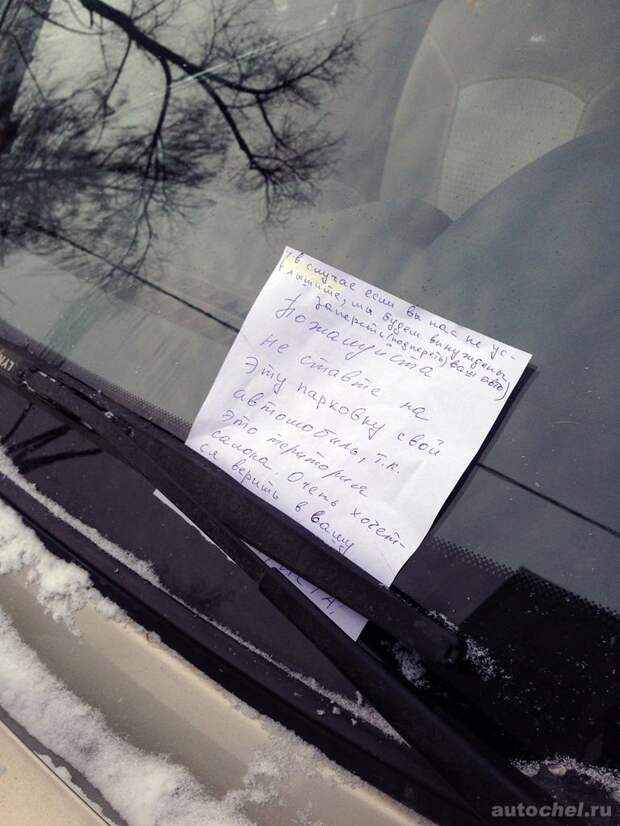 (в случае если вы нас не ус-
лышите, мы будем вынуждены
запереть (подпереть) ваш авто)
Пожалуйста
не ставте на
эту парковку свой
автомобиль, т.к.
это територия
салона. Очень хочет-
ся верить в вашу
autochel.ru